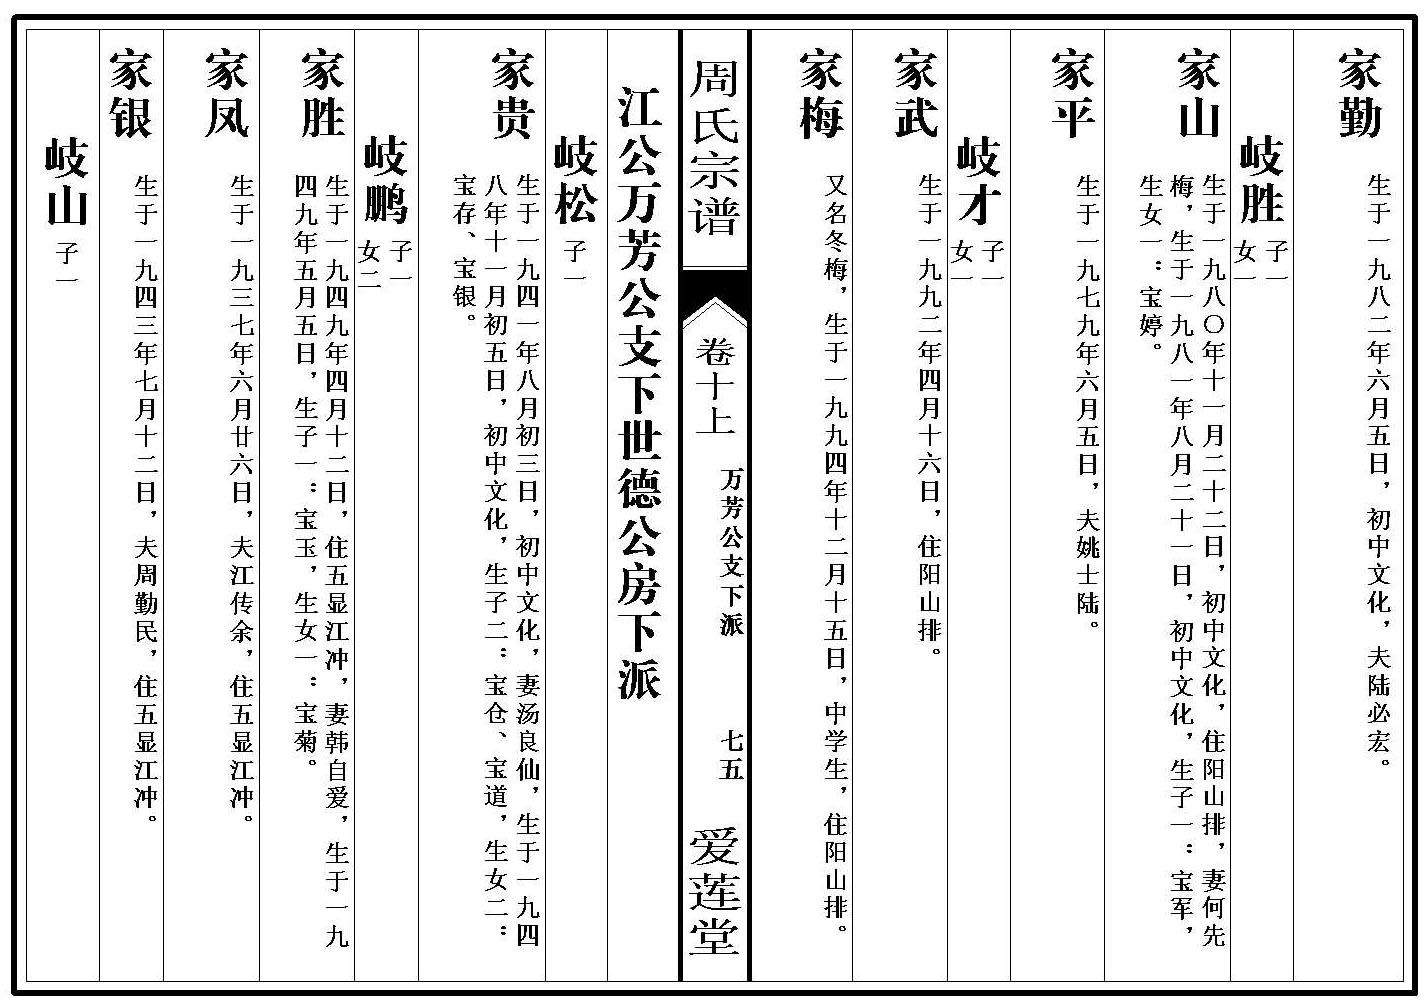 家勤
生于一九八二年六月五日，初中文化，夫陆必宏。
岐胜
子一
女一
家山
生于一九八〇年十一月二十二日，初中文化，住阳山排，妻何先
梅，生于一九八一年八月二十一日，初中文化，生子一：宝军，
生女一：宝婷。
家平
生于一九七九年六月五日，夫姚士陆。
岐才
子一
女一
家武
生于一九九二年四月十六日，住阳山排。
家梅
又名冬梅，生于一九九四年十二月十五日，中学生，住阳山排。
周氏宗谱
卷十上
万芳公支下派
七五
爱莲堂
江公万芳公支下世德公房下派
岐松
子一
家贵
生于一九四一年八月初三日，初中文化，妻汤良仙，生于一九四
八年十一月初五日，初中文化，生子二：宝仓、宝道，生女二：
宝存、宝银。
岐鹏
子一
女二
家胜
生于一九四九年四月十二日，住五显江冲，妻韩自爱，生于一九
四九年五月五日，生子一：宝玉，生女一：宝菊。
家凤
生于一九三七年六月廿六日，夫江传余，住五显江冲。
家银
生于一九四三年七月十二日，夫周勤民，住五显江冲。
岐山
子一